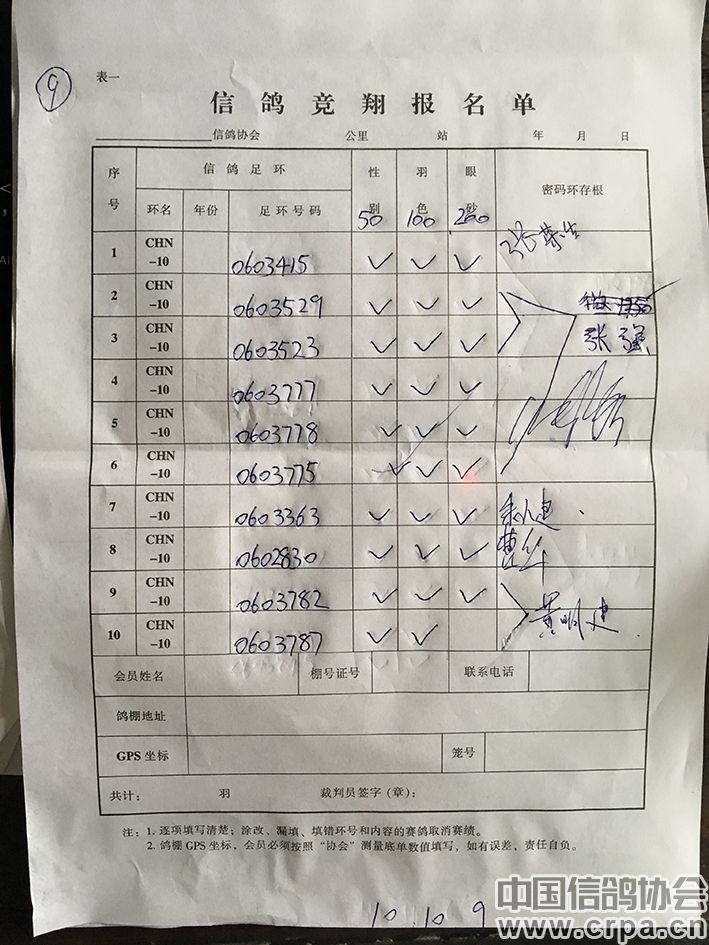 9
表一
信鸽竞翔报名单
信鸽协会 公里 站 年 月 日
序号 信鸽足环 性别 羽色 眼砂 密码环存根
环名 年份 足环号码 50 100 200
1 CHN-10 0603415 ✓ ✓ ✓
2 CHN-10 0603529 ✓ ✓ ✓
3 CHN-10 0603523 ✓ ✓ ✓ 张强
4 CHN-10 0603777 ✓ ✓ ✓
5 CHN-10 0603778 ✓ ✓ ✓
6 CHN-10 0603775 ✓ ✓ ✓
7 CHN-10 0603363 ✓ ✓ ✓
8 CHN-10 0602830 ✓ ✓ ✓
9 CHN-10 0603782 ✓ ✓ ✓ 黄明建
10 CHN-10 0603787 ✓ ✓
会员姓名 棚号证号 联系电话
鸽棚地址
GPS 坐标 笼号
共计： 羽 裁判员签字（章）：
注：1. 逐项填写清楚；涂改、漏填、填错环号和内容的赛鸽取消赛绩。
2. 鸽棚 GPS 坐标，会员必须按照“协会”测量底单数值填写，如有误差，责任自负。
10 10 9
中国信鸽协会
www.crpa.cn